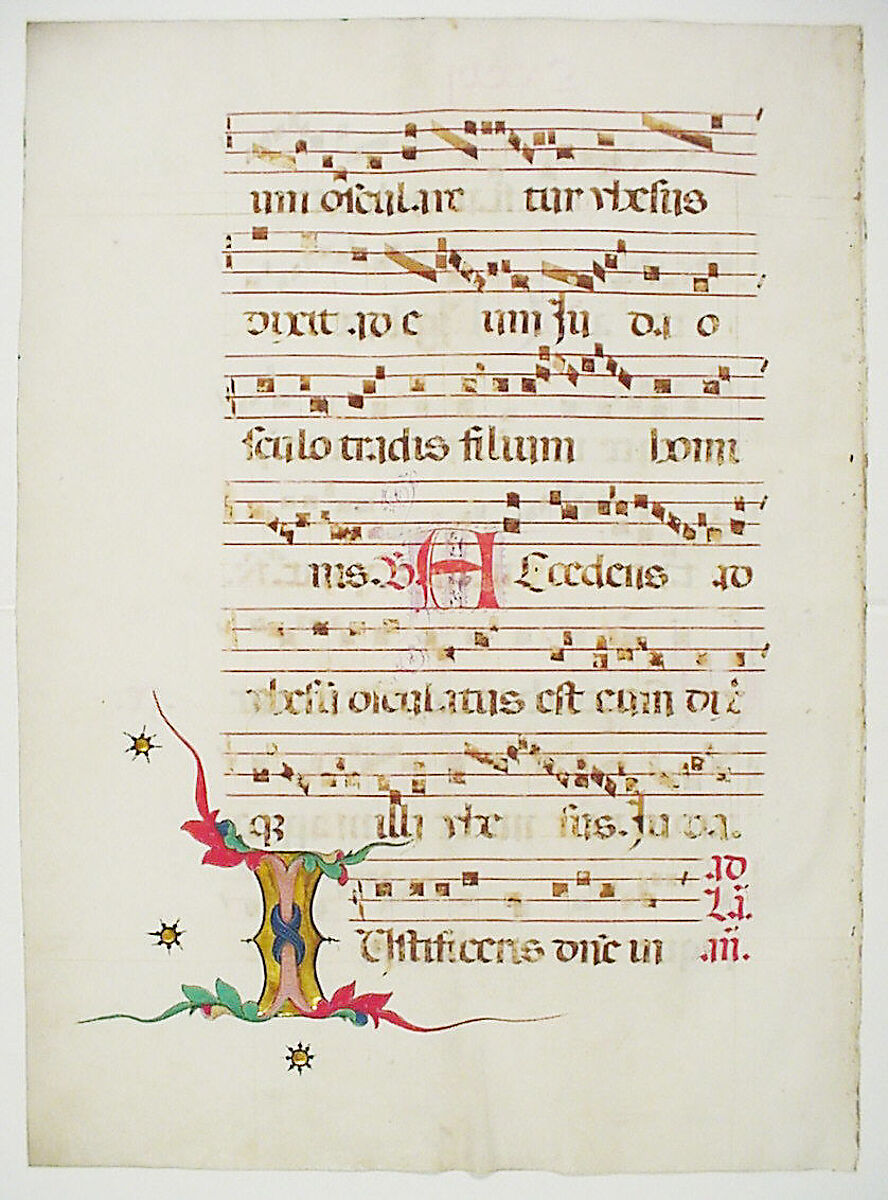 um osculare tur yhesus
dixit ad e um Ju da o
sculo tradis filium homi
nis. V. A Ccedens ad
yhesu osculatus est eum
illi yhe sus. Ju da.
ad
La.
I Ustificeris dn̄e in .iii.